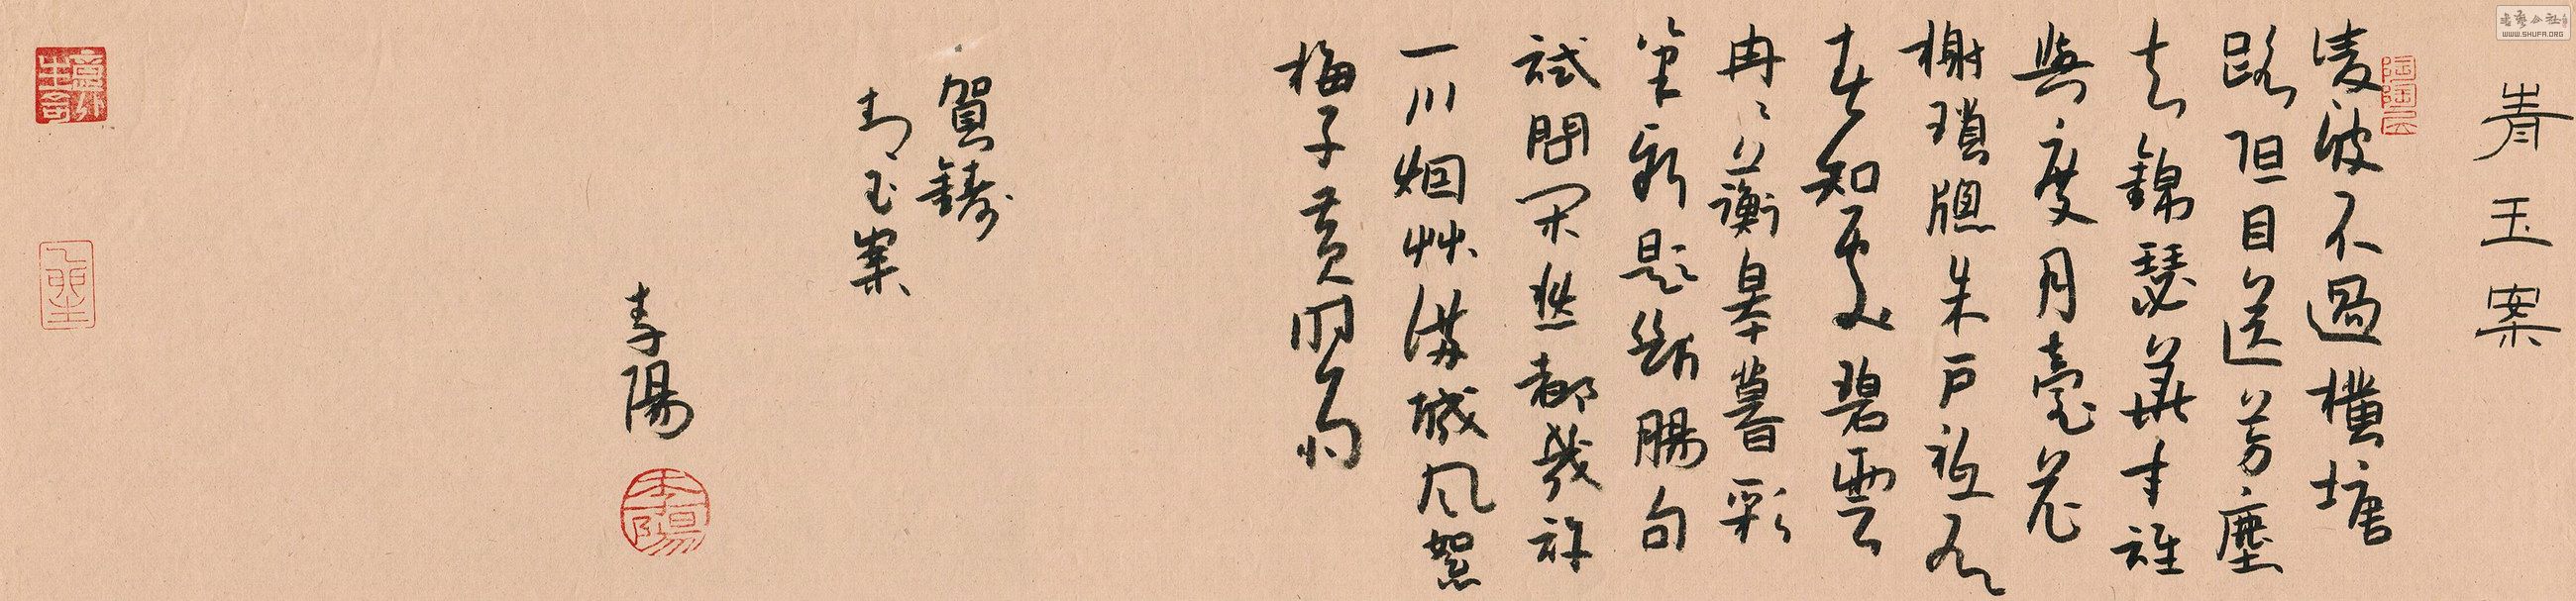 青玉案
淩波不過橫塘
路但目送芳塵
去錦瑟華年誰
與度月臺花
榭瑣牕朱戶祗有
春知處碧雲
冉〻蘅皋暮彩
筆新題斷腸句
試問閑愁都幾許
一川烟艸滿城風絮
梅子黃時雨
賀鑄
青玉案
陽
WWW.SHUFA.ORG